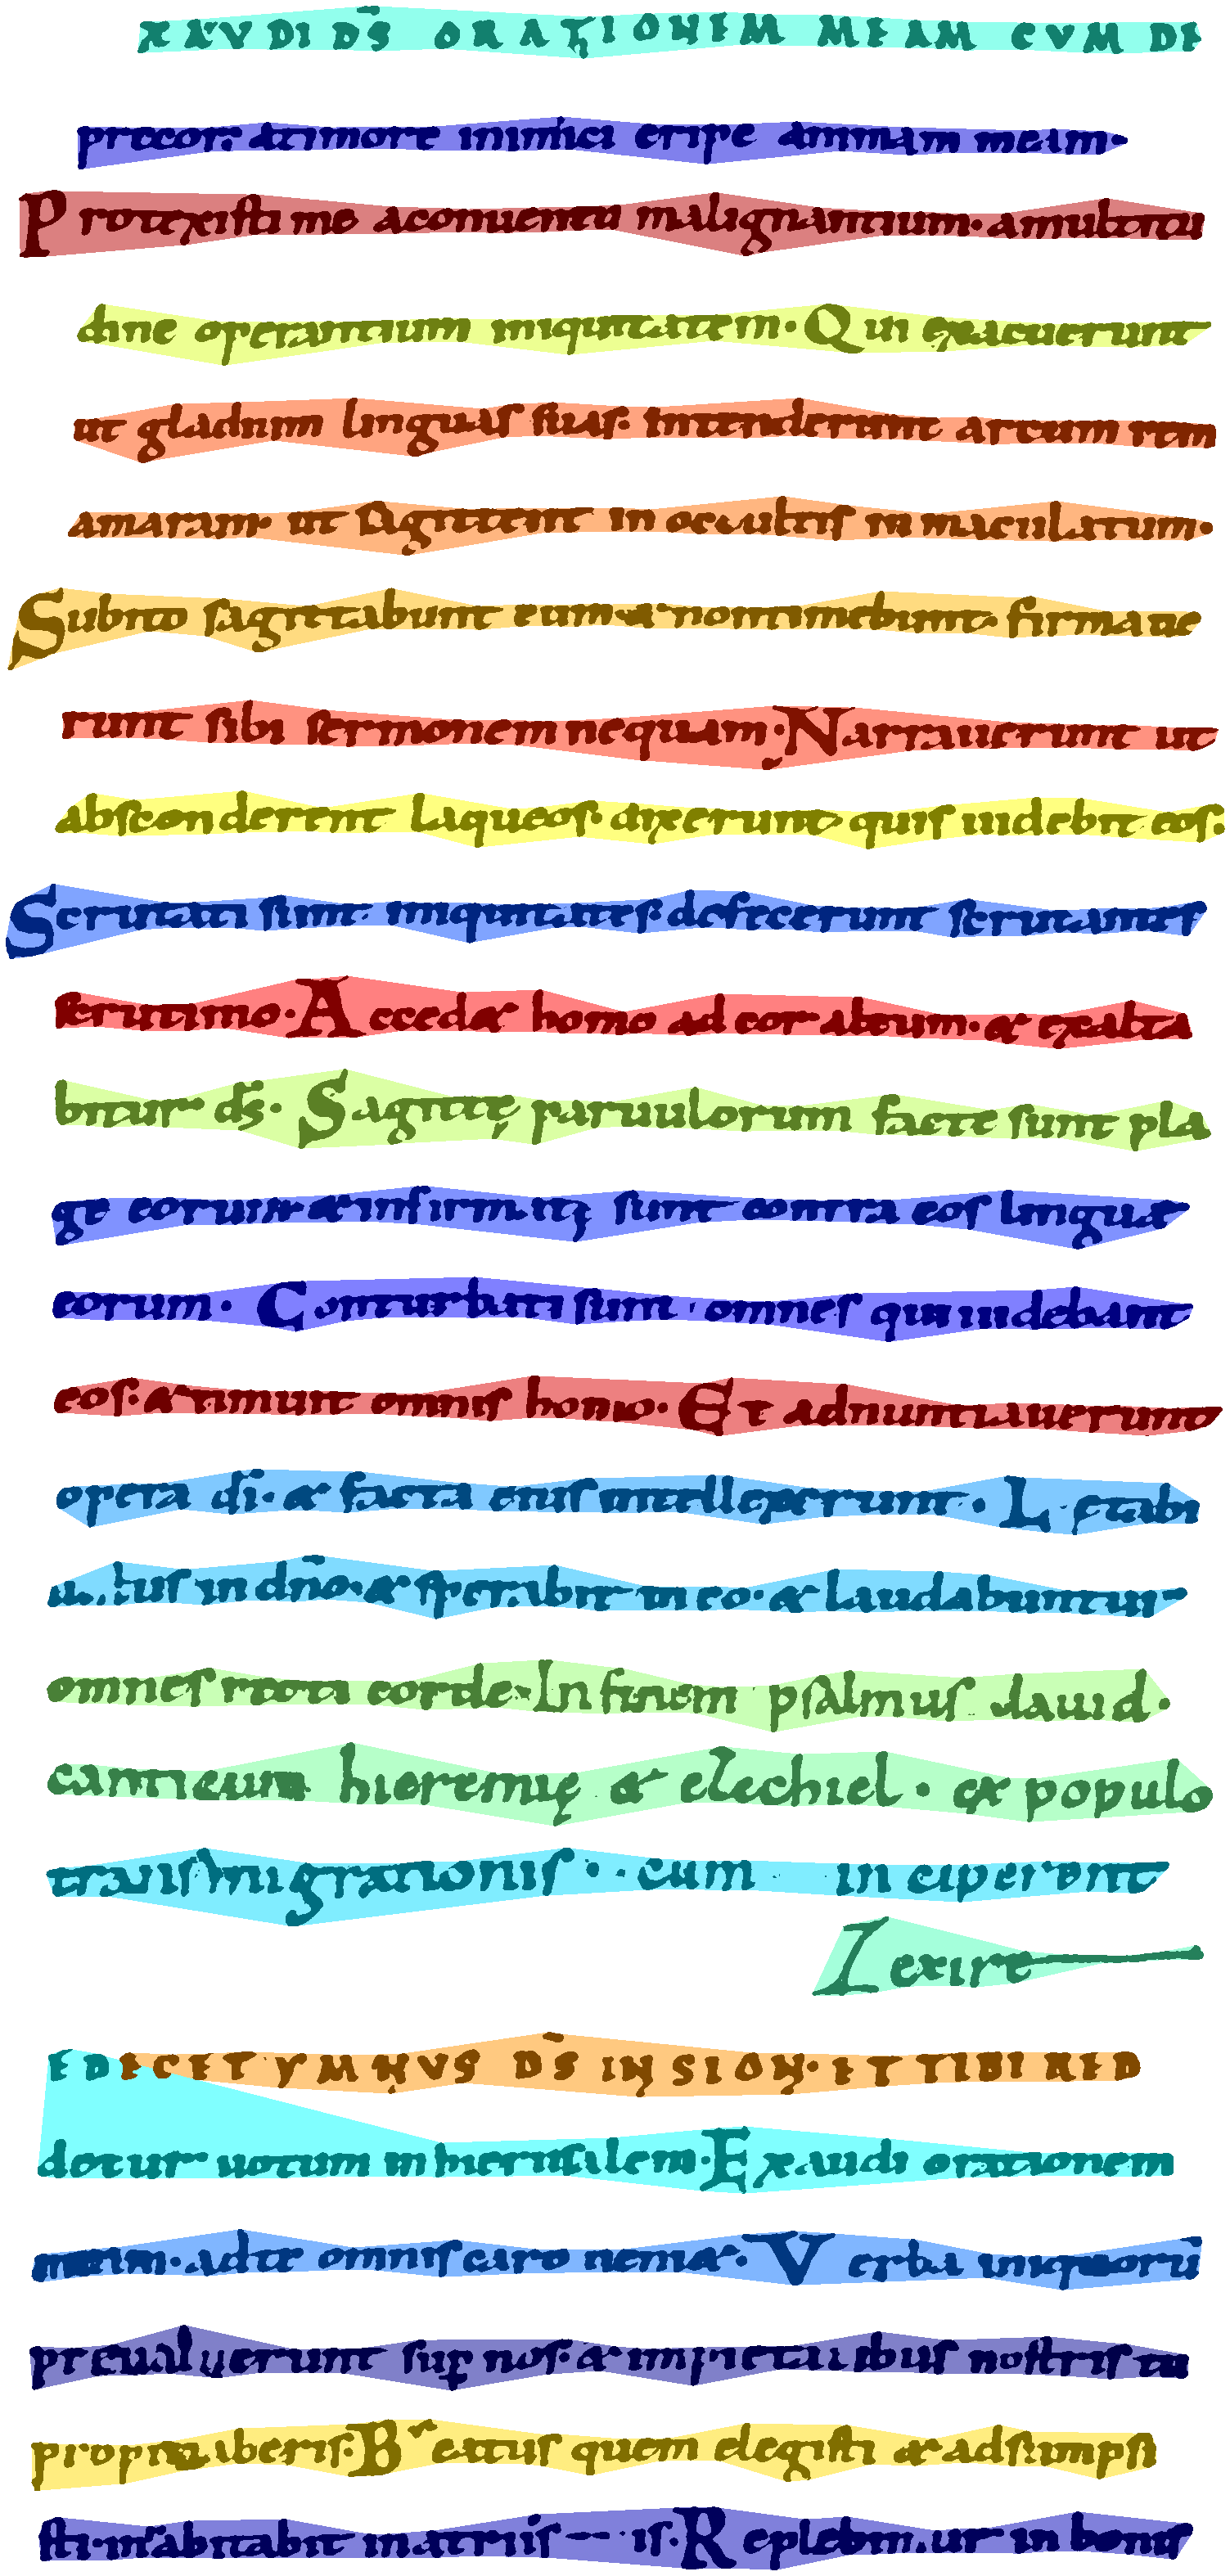 XAUDI DS̄ ORATIONEM MEAM CVM DE
precor. atimore inimici eripe animam meam.
Protexisti me aconuentu malignantium. amultitu
dine operantium iniquitatem. Qui exacuerunt
ut gladium linguas suas. intenderunt arcum rem
amaram. ut sagittent in occultis inmaculatum.
Subito sagittabunt eum & nontimebunt. firmaue
runt sibi sermonem nequam. Narrauerunt ut
absconderent laqueos. dixerunt quis uidebit eos.
Scrutati sunt iniquitates. defecerunt scrutantes
scrutinio. Acced& homo ad cor altum. & exalta
bitur ds̄. Sagittę paruulorum facte sunt pla
ge eorum & infirmatę sunt contra eos linguae
eorum. Conturbati sunt omnes qui uidebant
eos. & timuit omnis homo. Et adnuntiauerunt
opera dī. & facta eius intellexerunt. Lętabi
tus in dn̄o. & sperabit in eo. & laudabuntur
omnes recti corde. In finem psalmus dauid.
canticum hieremię & ezechiel. ex populo
transmigrationis. cum inciperent
exire
E DECET YMNVS DS̄ IN SION. ET TIBI RED
detur uotum in hierusalem. Exaudi orationem
meam. adte omnis caro ueni&. Verba iniquorū
preualuerunt sup̱ nos. & impietatibus nostris tu
propitiaberis. Beatus quem elegisti & adsumpsi
sti. inhabitabit in atriis is. Replebimur in bonis